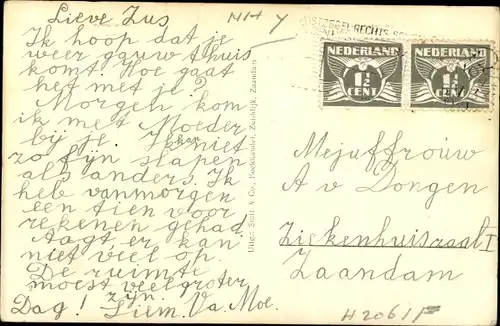 Lieve Zus
NH Y
Ik hoop dat je
weer gauw thuis
komt. Hoe gaat
het met je?
Morgen kom
ik met Moeder
bij je. Ik kan niet
zo fijn slapen
als anders. Ik
heb vanmorgen
een tien voor
rekenen gehad.
Aagt er kan
niet veel op.
De ruimte
moest veel groter
zijn.
Dag! Siem. Va. Moe.
Uitg.: Smit & Co., Boekhandel, Zuiddijk, Zaandam
NEDERLAND
1½
CENT
NEDERLAND
1½
CENT
Mejuffrouw
A v Dongen
Ziekenhuiszaal I
Zaandam
H 2061F